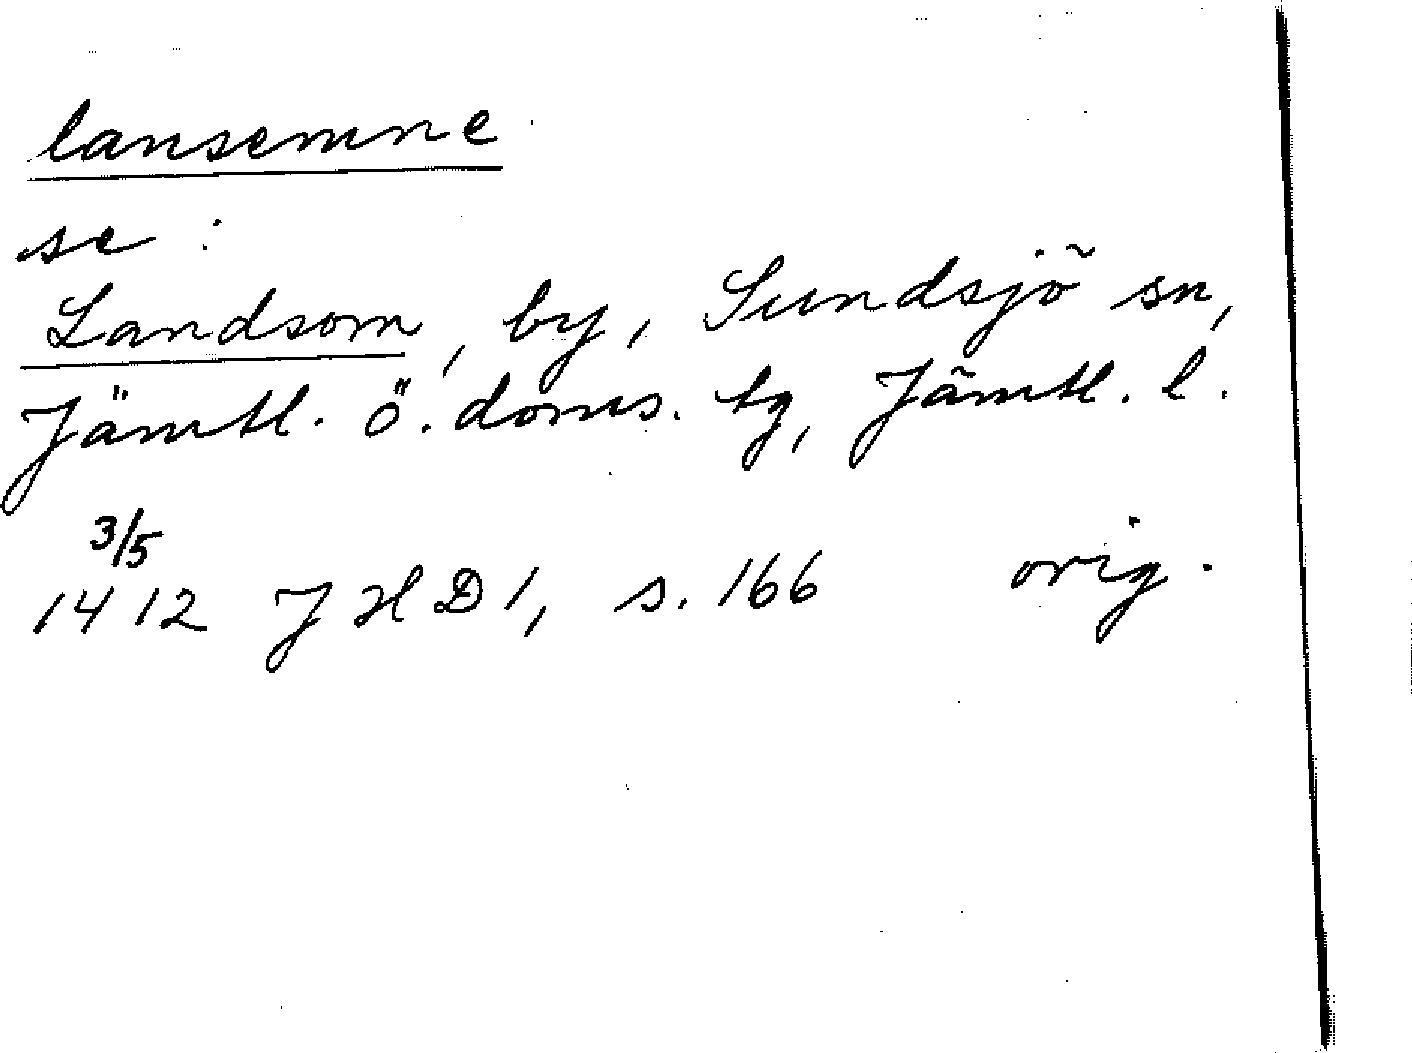 lansemne
se:
Landsom, by, Sundsjö sn,
Jämtl. ö. doms. tg, Jämtl. l.
3/5
1412 JHD 1, s. 166 orig.